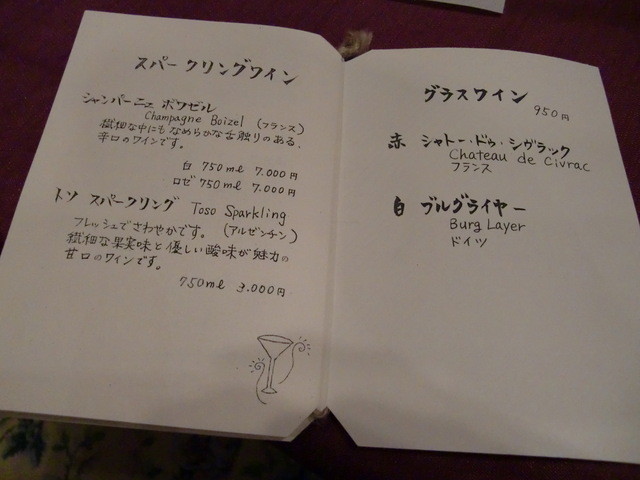 スパークリングワイン
シャンパーニュ ボワゼル
Champagne Boizel (フランス)
繊細な中にもなめらかな舌触りのある、
辛口のワインです。
白 750ml 7.000円
ロゼ 750ml 7.000円
トソ スパークリング Toso Sparkling
フレッシュでさわやかです。 (アルゼンチン)
繊細な果実味と優しい酸味が魅力の
甘口のワインです。
750ml 3.000円
グラスワイン 950円
赤 シャトー・ドゥ・シヴラック
Chateau de Civrac
フランス
白 ブルグライヤー
Burg Layer
ドイツ